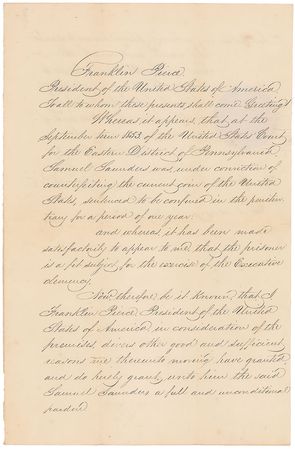 Franklin Pierce
President of the United States of America
To all to whom these presents shall come Greeting
Whereas it appears, that, at the
September term 1853, of the United States Court
for the Eastern District of Pennsylvania
Samuel Saunders was, under conviction of
counterfeiting the current coin of the United
States, sentenced to be confined in the peniten-
tiary for a period of one year:
and whereas, it has been made
satisfactorily to appear to me, that the prisoner
is a fit subject for the exercise of the Executive
clemency.
Now, therefore, be it known, that I
Franklin Pierce, President of the United
States of America, in consideration of the
premises, divers other good and sufficient
reasons me thereunto moving, have granted
and do hereby grant, unto him the said
Samuel Saunders a full and unconditional
pardon